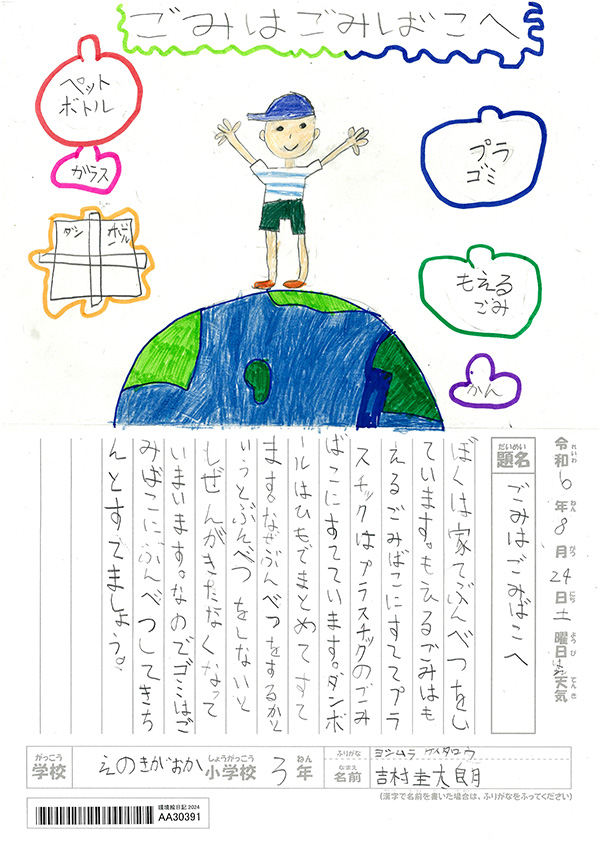 ごみはごみばこへ
ペット
ボトル
ガラス
ダン
ボール
プラ
ゴミ
もえる
ごみ
かん
令和6年8月24日土曜日
れいわ
ねん
がつ
にち
ようび
天気
てんき
だいめい
題名
ごみはごみばこへ
ぼくは家でぶんべつをし
ています。もえるごみはも
えるごみばこにすててプラ
スチックはプラスチックのごみ
ばこにすてています。ダンボ
ールはひもでまとめてすて
ます。なぜぶんべつをするかと
いうとぶんべつをしないと
しぜんがきたなくなって
しまいます。なのでゴミはご
みばこにぶんべつしてきち
んとすてましょう。
がっこう
学校
えのきがおか
しょうがっこう
小学校
3
ねん
年
ふりがな
ヨシムラ ケイタロウ
なまえ
名前
吉村圭太朗
(漢字で名前を書いた場合は、ふりがなをふってください)
環境絵日記2024
AA30391